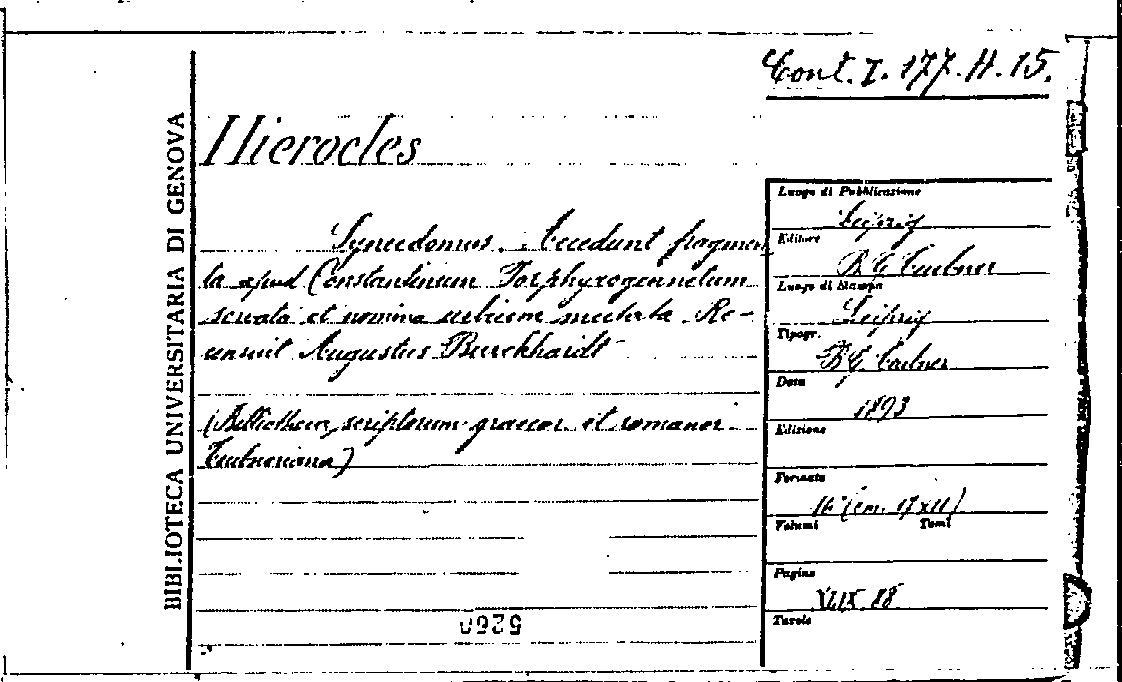 Cont. I. 177. H. 15.
BIBLIOTECA UNIVERSITARIA DI GENOVA
Hierocles
Synecdemus. Accedunt fragmen
ta apud Constantinum Porphyrogennetum
servata et nomina urbium mutata. Re-
censuit Augustus Burckhardt
(Bibliotheca scriptorum graecor. et romanor.
Teubneriana)
Luogo di Pubblicazione
Leipzig
Editore
B. G. Teubner
Luogo di Stampa
Leipzig
Tipogr.
B. G. Teubner
Data
1893
Edizione
Formato
16° (cm. 17x11)
Volumi Tomi
Pagine
XLIX. 88
Tavole